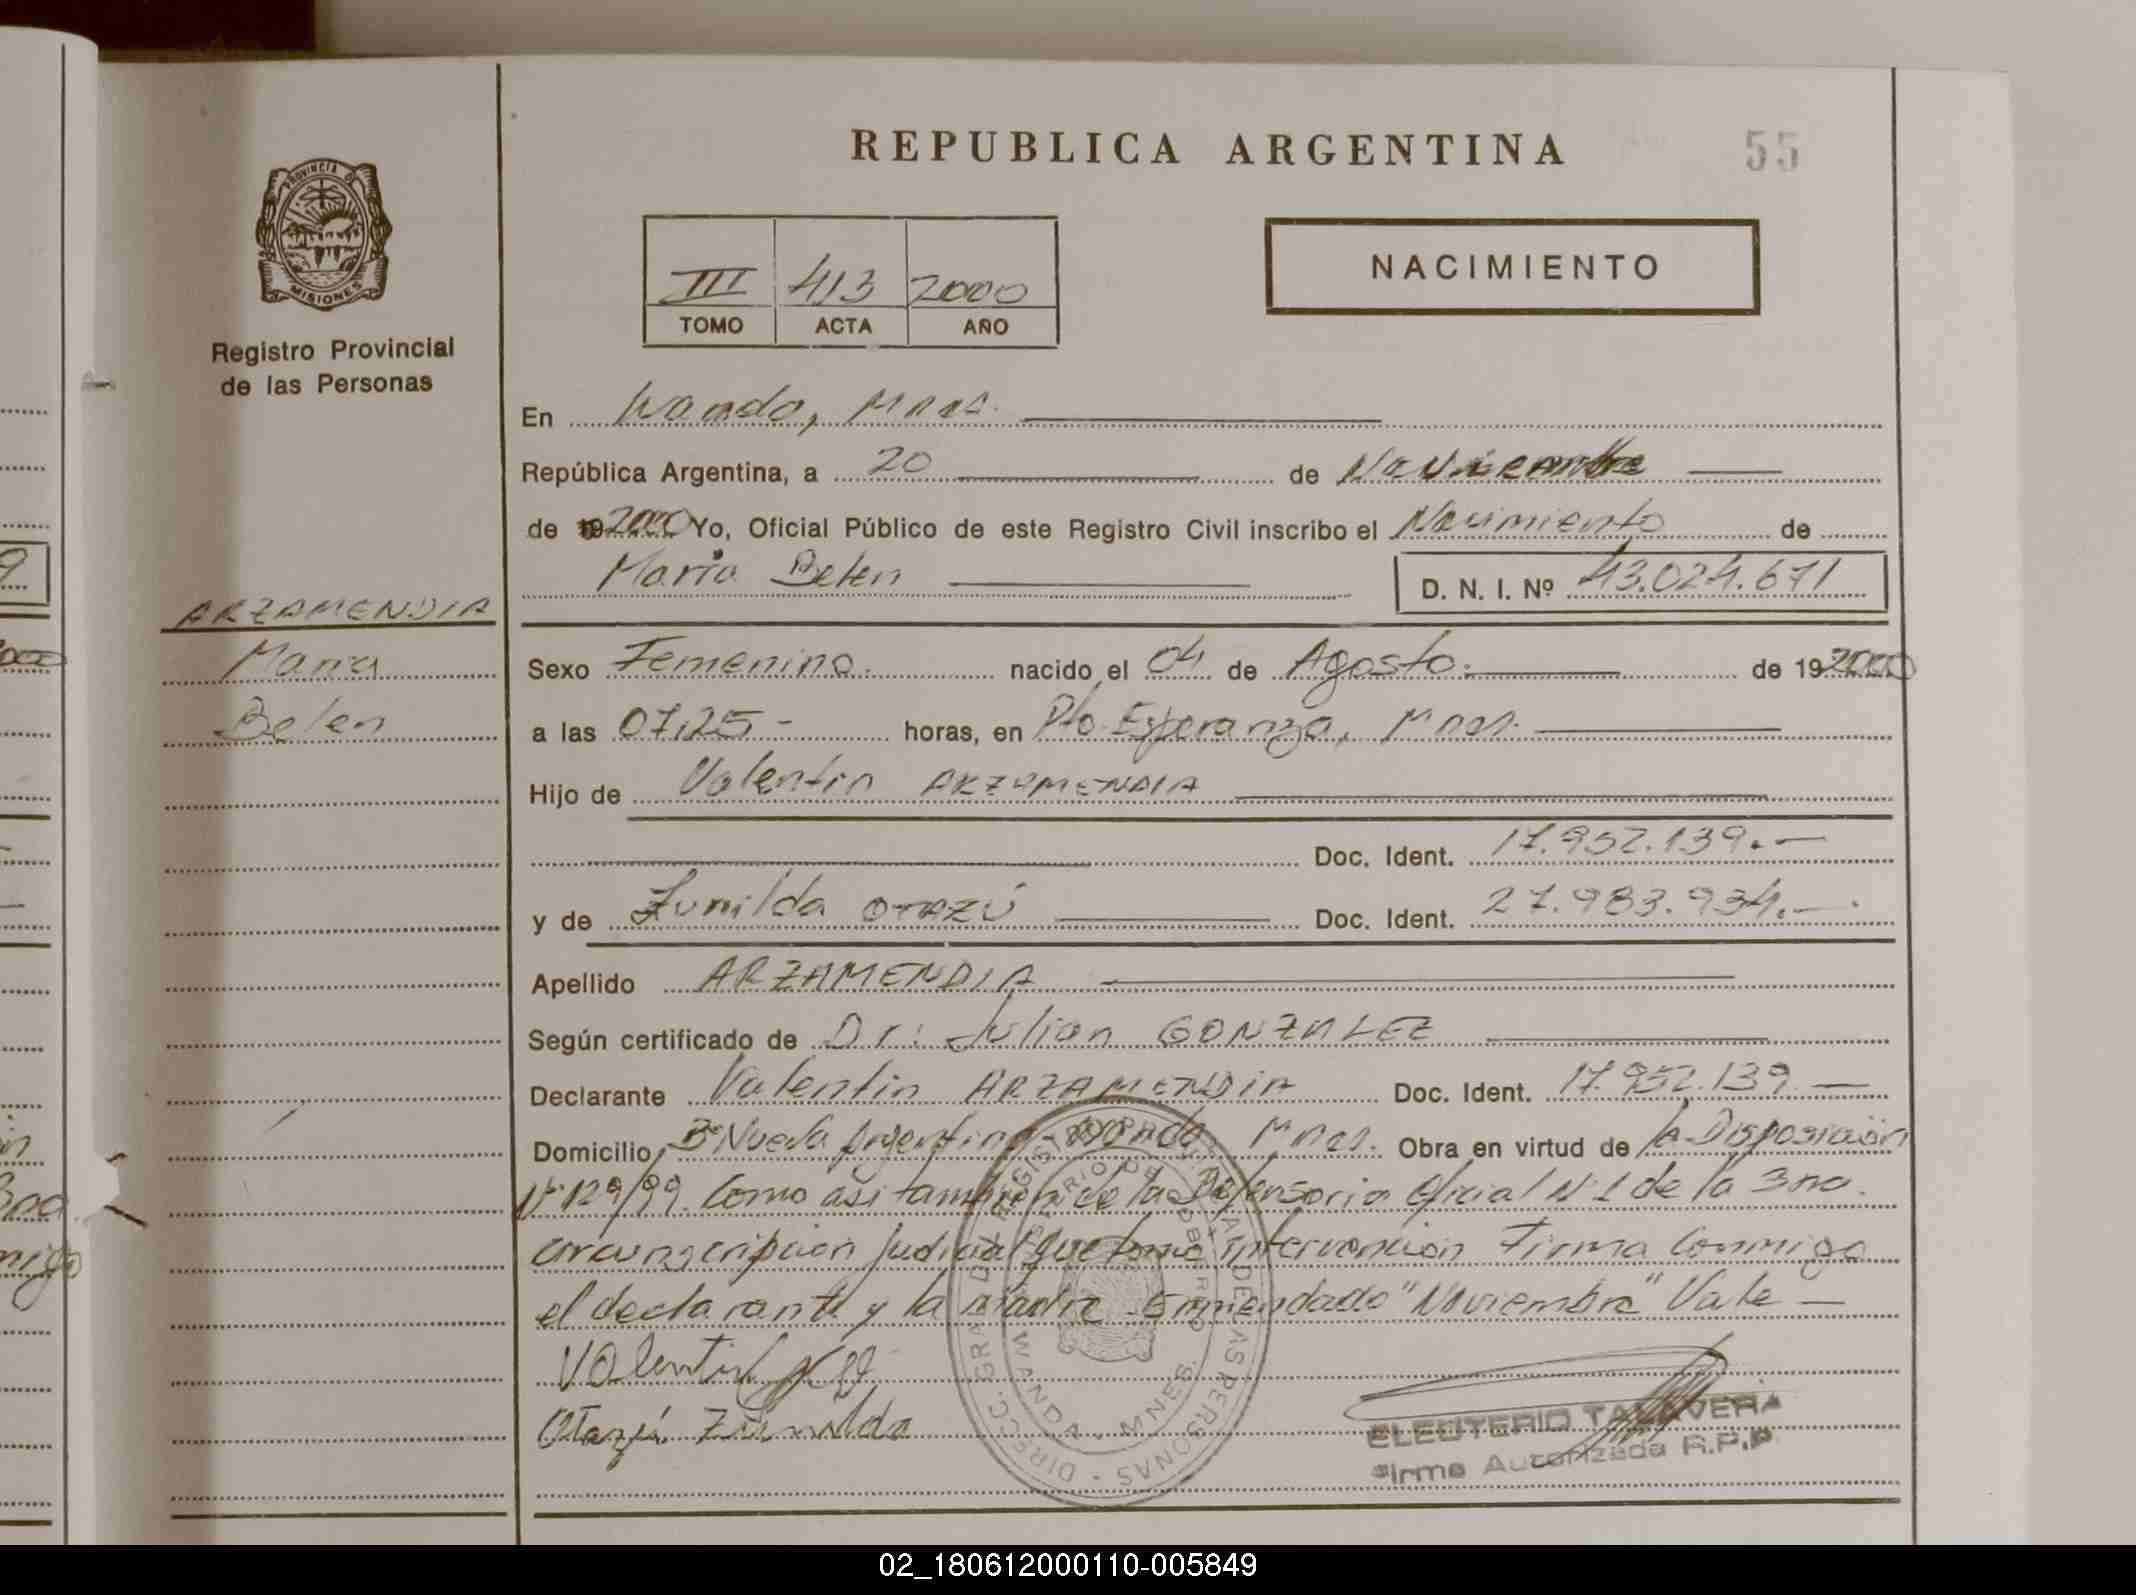 REPUBLICA ARGENTINA
55
PROVINCIA DE
MISIONES
Registro Provincial
de las Personas
III 413 2000
TOMO ACTA AÑO
NACIMIENTO
En Wanda, Mnes.
República Argentina, a 20 de Noviembre
de 192000 Yo, Oficial Público de este Registro Civil inscribo el Nacimiento de
Maria Belen
D. N. I. Nº 43.024.671
ARZAMENDIA
Maria
Belen
Sexo Femenino. nacido el 04 de Agosto. de 19 2000
a las 07,25 - horas, en Pto. Esperanza, Mnes.
Hijo de Valentin ARZAMENDIA
Doc. Ident. 17.952.139.-
y de Zunilda OTAZÚ Doc. Ident. 27.983.934.-
Apellido ARZAMENDIA
Según certificado de Dr: Julian GONZALEZ
Declarante Valentin ARZAMENDIA Doc. Ident. 17.952.139
Domicilio Bº Nueva Argentina - Wanda, Mnes. Obra en virtud de la Disposición
Nº 129/99. Como asi tambien de la Defensoria Oficial Nº 1 de la 3ra.
circunscripcion Judicial que tomó intervencion Firma Conmigo
el declarante y la madre - Enmendado "Noviembre" Vale
Valentin
Otazú Zunilda
DIRECC. GRAL. DEL REGISTRO PROVINCIAL DE LAS PERSONAS
MINISTERIO DE GOBIERNO
WANDA - MNES.
ELEUTERIO TALAVERA
Firma Autorizada R.P.P.
02_180612000110-005849